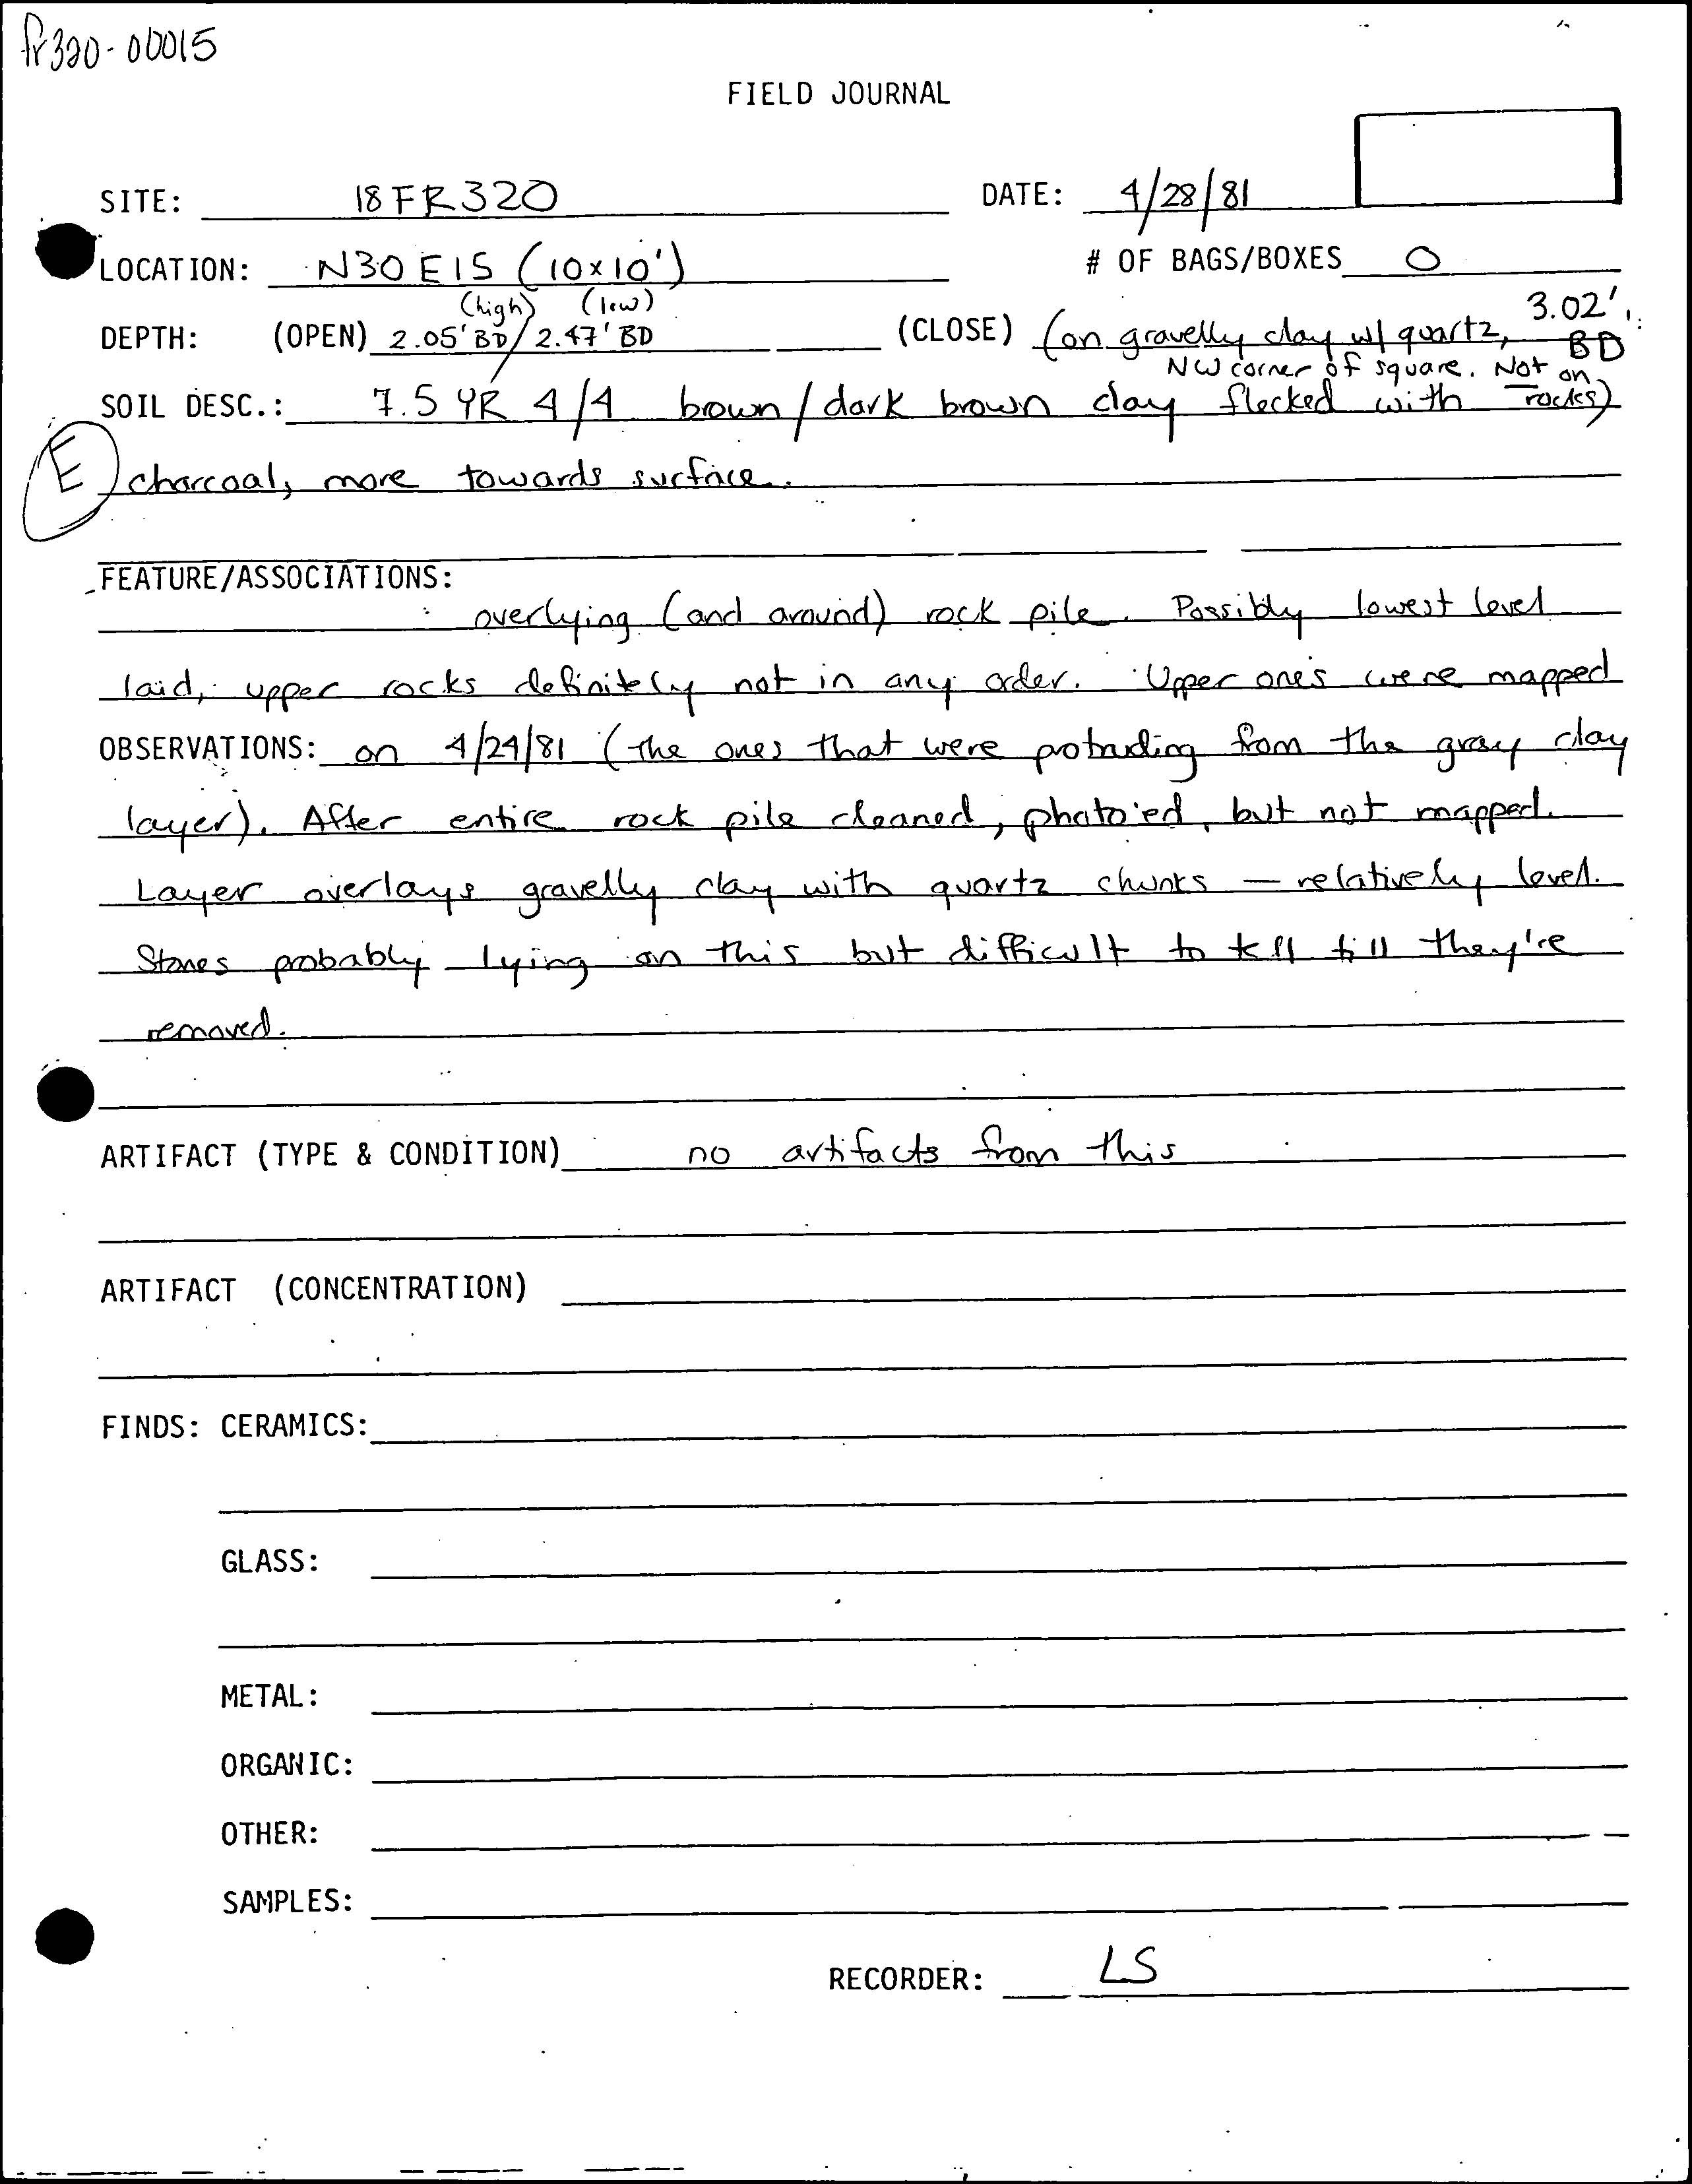 fr320-00015
FIELD JOURNAL
SITE: 18FR320 DATE: 4/28/81
LOCATION: N30 E15 (10x10') # OF BAGS/BOXES 0
(high) (low) 3.02'
DEPTH: (OPEN) 2.05' BD / 2.47' BD (CLOSE) (on gravelly clay w/ quartz, BD
NW corner of square. Not on
SOIL DESC.: 7.5 YR 4/4 brown / dark brown clay flecked with rocks)
E charcoal, more towards surface.
FEATURE/ASSOCIATIONS:
overlying (and around) rock pile. Possibly lowest level
laid, upper rocks definitely not in any order. Upper one's were mapped
OBSERVATIONS: on 4/24/81 (the ones that were protruding from the gray clay
layer). After entire rock pile cleaned, photo'ed, but not mapped.
Layer overlays gravelly clay with quartz chunks — relatively level.
Stones probably lying on this but difficult to tell till they're
removed.
ARTIFACT (TYPE & CONDITION) no artifacts from this
ARTIFACT (CONCENTRATION)
FINDS: CERAMICS:
GLASS:
METAL:
ORGANIC:
OTHER:
SAMPLES:
RECORDER: LS